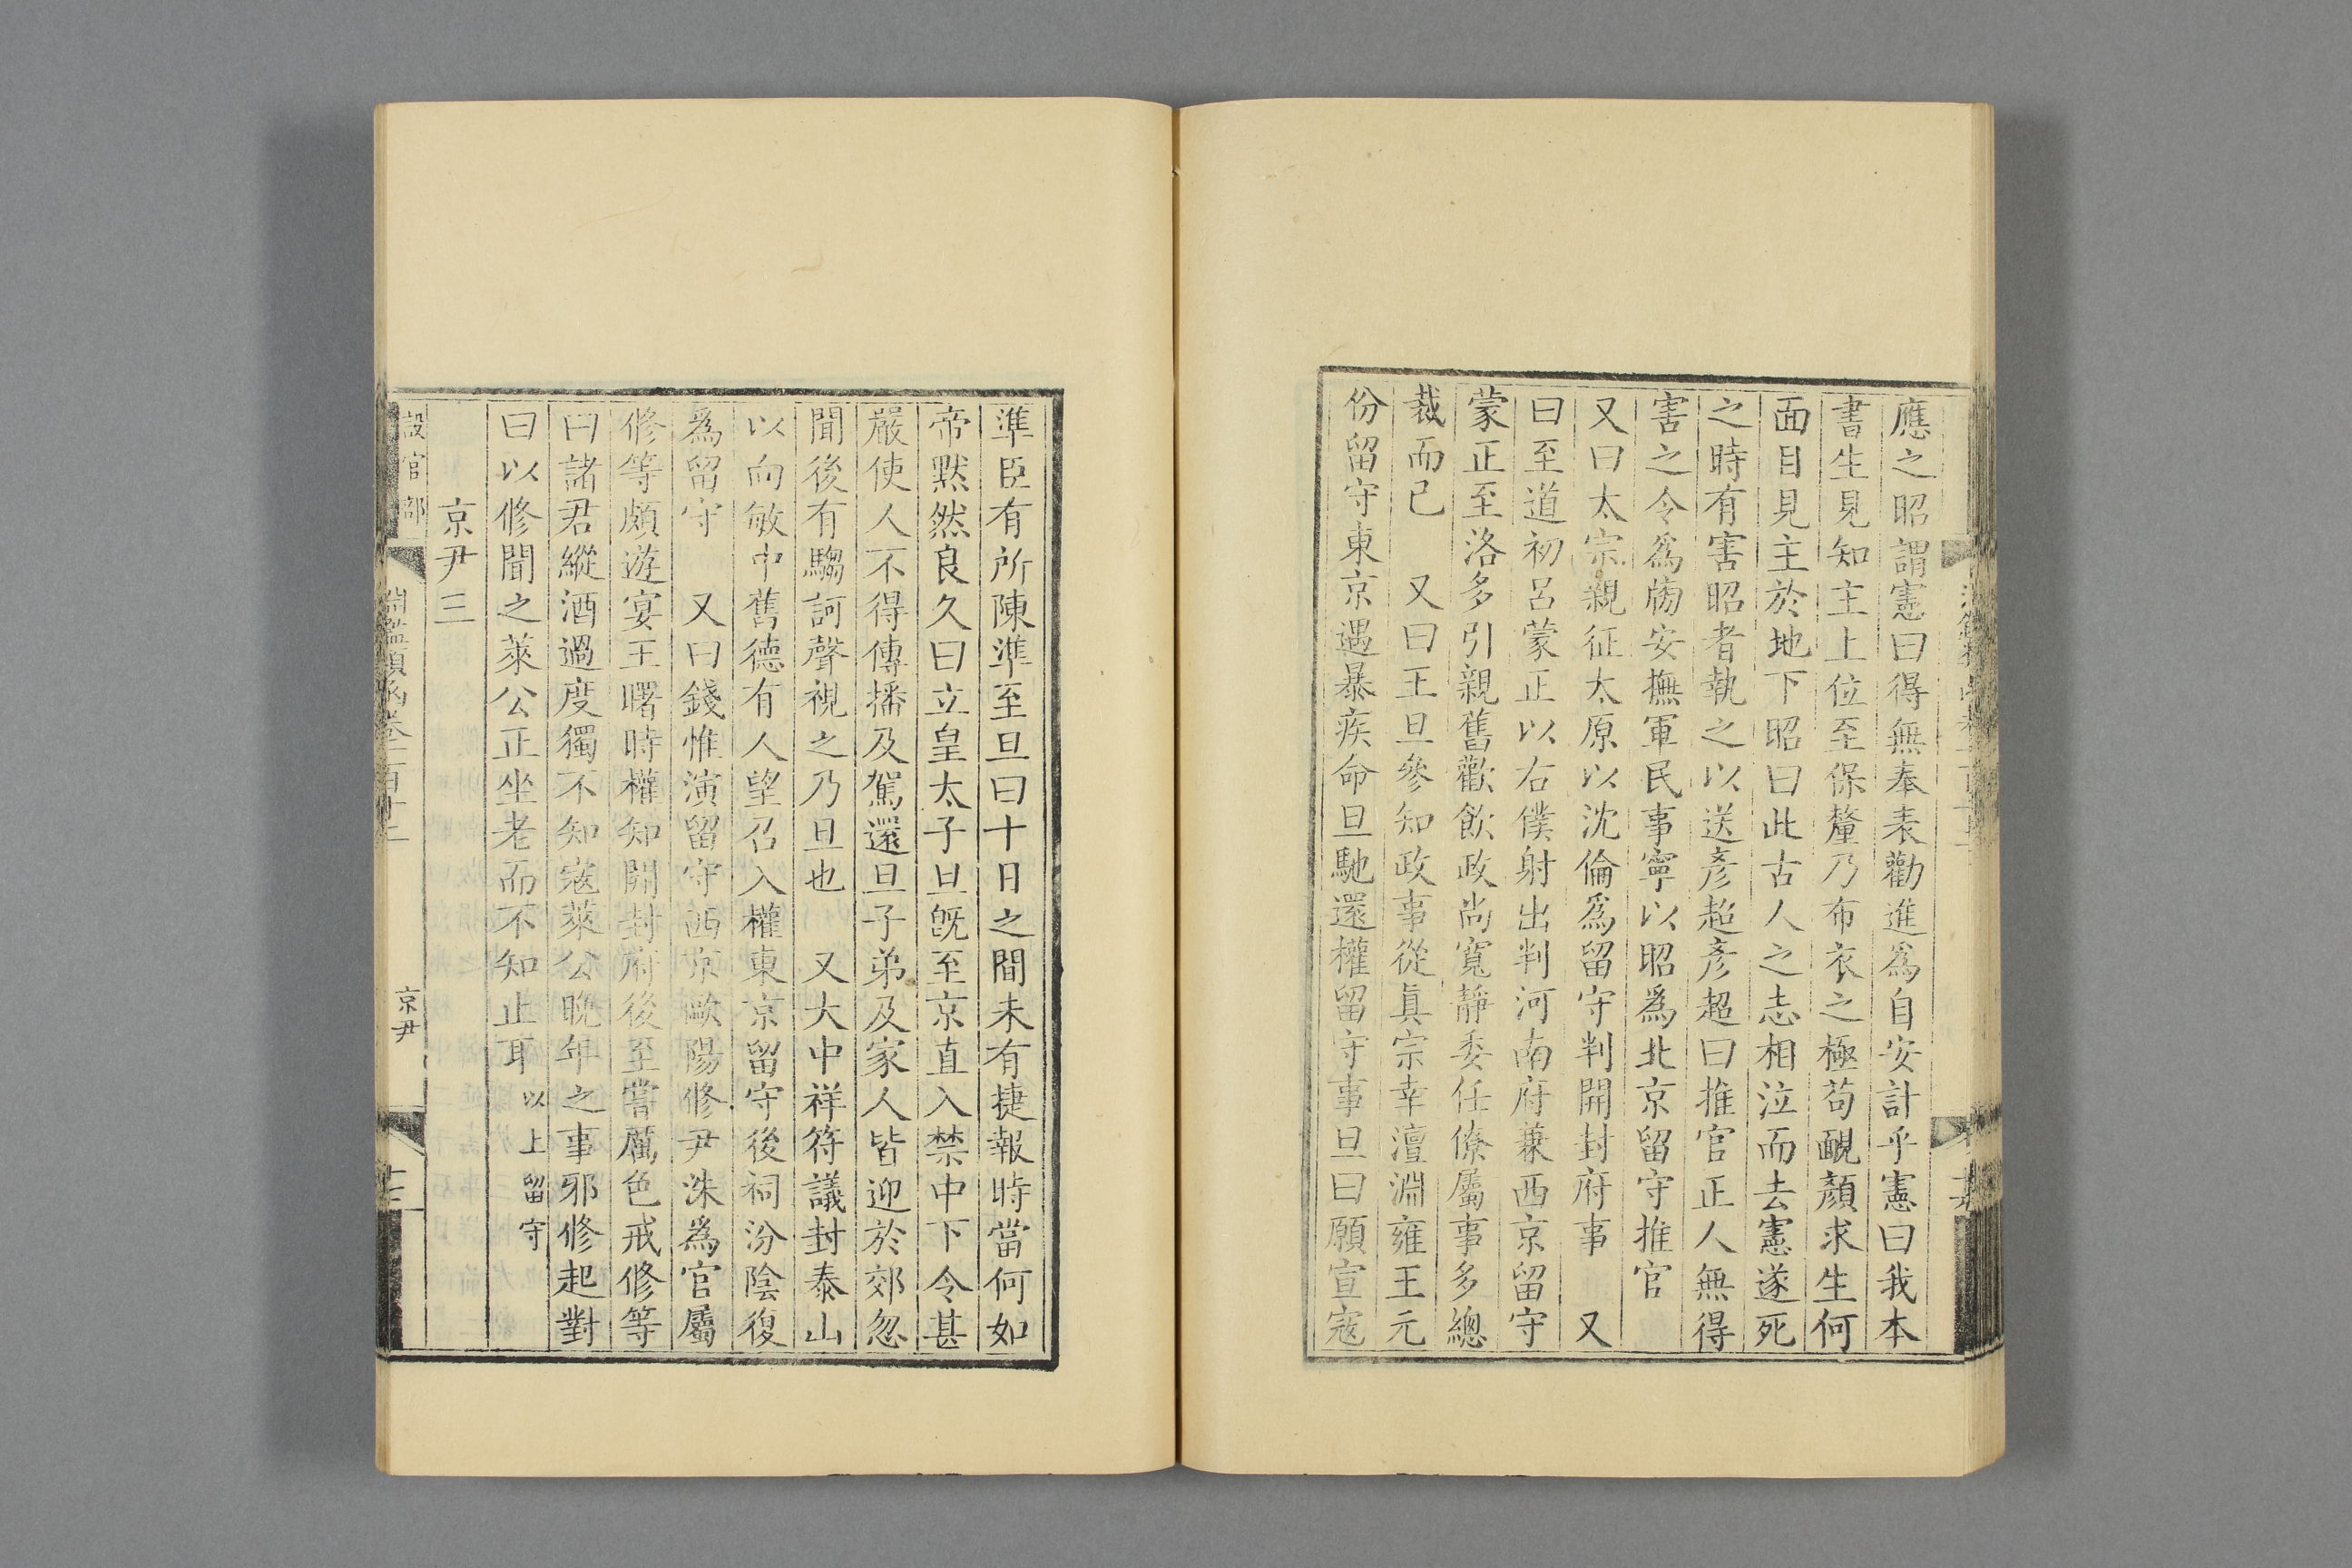 應之昭謂憲曰得無奉表勸進爲自安計乎憲曰我本
書生見知主上位至保釐乃布衣之極苟靦顏求生何
面目見主於地下昭曰此古人之志相泣而去憲遂死
之時有害昭者執之以送彥超彥超曰推官正人無得
害之令爲牓安撫軍民事寧以昭爲北京留守推官
又曰太宗親征太原以沈倫爲留守判開封府事　又
曰至道初呂蒙正以右僕射出判河南府蒹西京留守
蒙正至洛多引親舊歡飲政尚寬靜委任僚屬事多總
裁而已　又曰王旦參知政事從眞宗幸澶淵雍王元
份留守東京遇暴疾命旦馳還權留守事旦曰願宣寇
準臣有所陳準至旦曰十日之間未有捷報時當何如
帝默然良久曰立皇太子旦旣至京直入禁中下令甚
嚴使人不得傳播及駕還旦子弟及家人皆迎於郊忽
聞後有騶訶聲視之乃旦也　又大中祥符議封泰山
以向敏中舊德有人望召入權東京留守後祠汾陰復
爲留守　又曰錢惟演留守西京歐陽修尹洙爲官屬
修等頗遊宴王曙時權知開封府後至嘗厲色戒修等
曰諸君縱酒過度獨不知寇萊公晚年之事邪修起對
曰以修聞之萊公正坐老而不知止耳 以上留守
京尹三
設官部
淵鑑類函卷一百十二
京尹